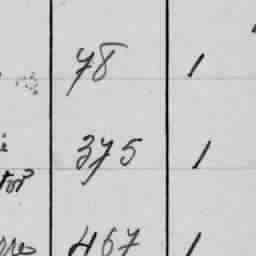 78 1
375 1
467 1